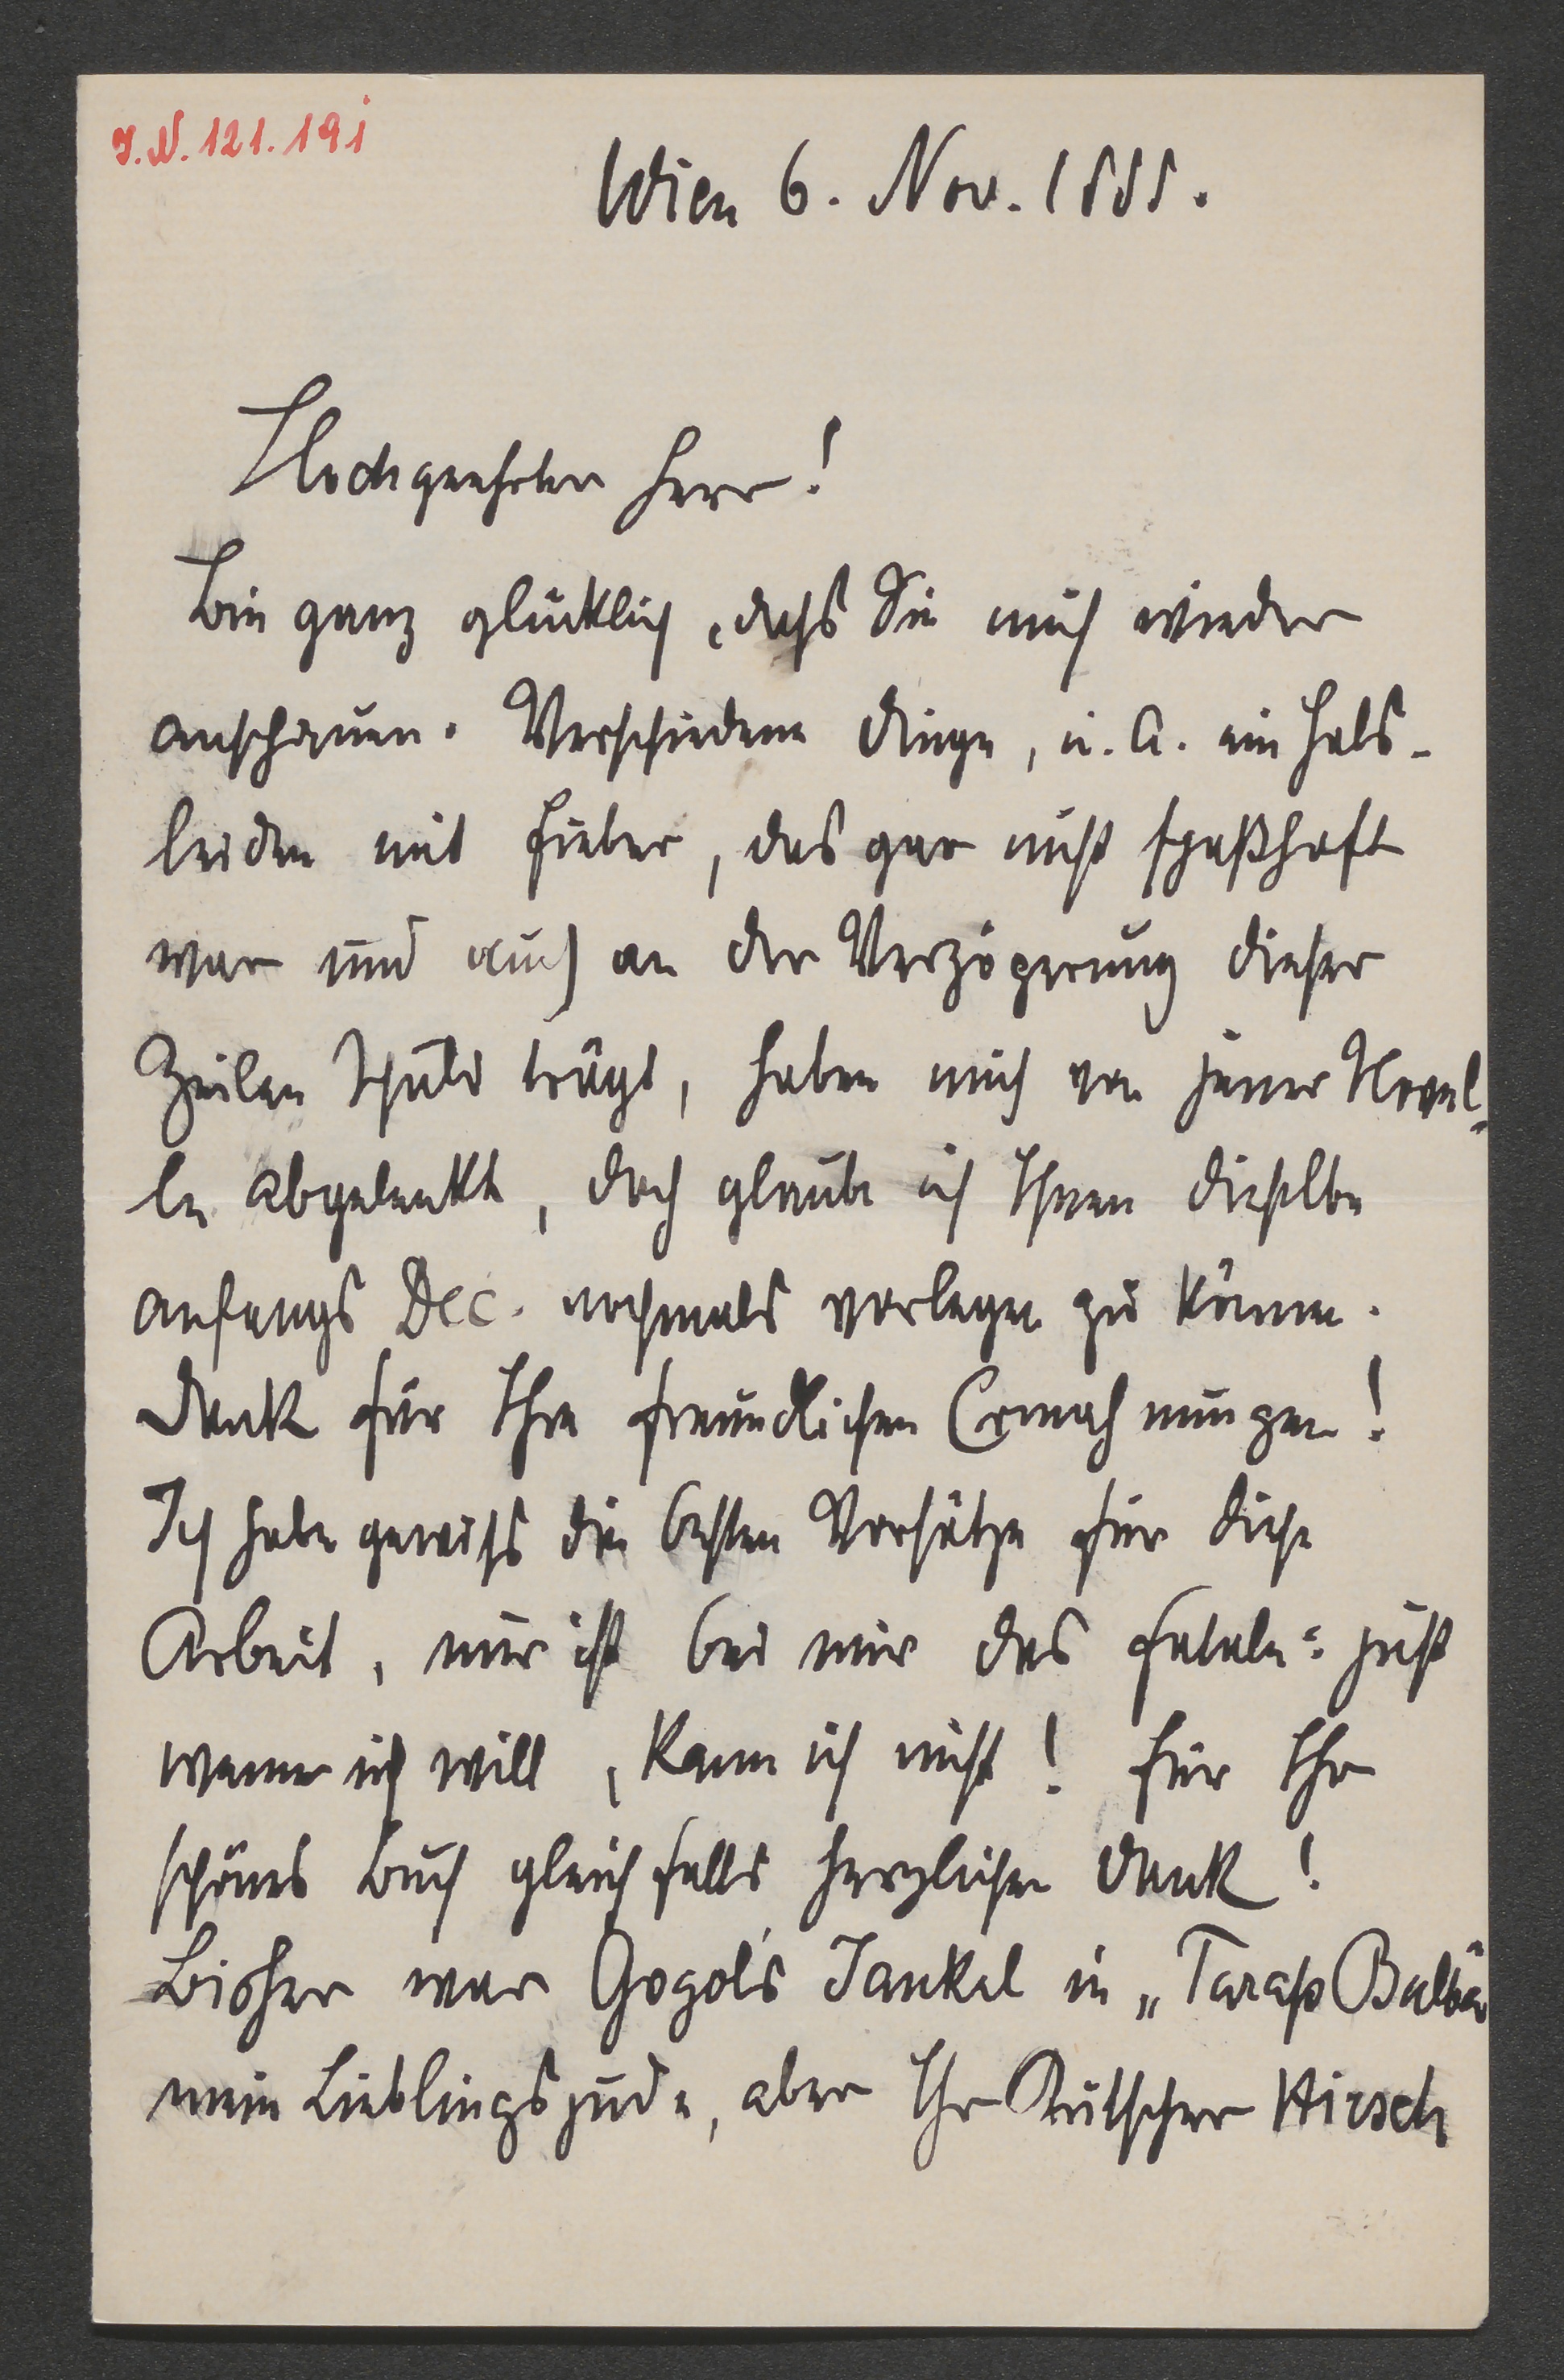 J.N. 121.191
Wien 6. Nov. 1888.
Hochgeehrter Herr!
Bin ganz glücklich, dass Sie mich wieder
anschauen. Verschiedene Dinge, u. A. ein Hals-
leiden mit Fieber, das gar nicht spaßhaft
war und auch an der Verzögerung dieser
Zeilen Schuld trägt, haben mich von jener Novel-
le abgelenkt, doch glaube ich Ihnen dieselbe
anfangs Dec. nochmals vorlegen zu können.
Dank für Ihre freundlichen Ermahnungen!
Ich habe gewiss die besten Vorsätze für diese
Arbeit, nur ist bei mir das Fatale: just
wenn ich will, kann ich nicht! Für Ihr
schönes Buch gleichfalls herzlichen Dank!
Bisher war Gogol's Jankel in „Taraß Bulba
mein Lieblingsjude, aber Ihr Kutscher Hirsch